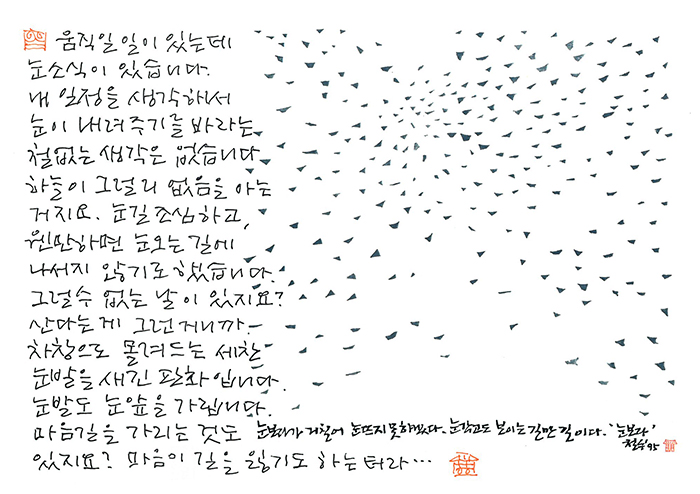 움직일 일이 있는데
눈소식이 있습니다.
내 일정을 생각하셔서
눈이 내려주기를 바라는
철없는 생각은 없습니다
하늘이 그럴리 없음을 아는
거지요. 눈길 조심하고,
웬만하면 눈오는 길에
나서지 않기로 했습니다.
그럴수 없는 날이 있지요?
산다는게 그런거니까-
차창으로 몰려드는 세찬
눈발을 새긴 판화입니다.
눈발도 눈앞을 가립니다.
마음길을 가리는 것도
있지요? 마음이 길을 잃기도 하는 터라…
눈보라가 거칠어 눈뜨지 못하겠다. 눈감고도 보이는 길만 길이다. '눈보라'
철수 95